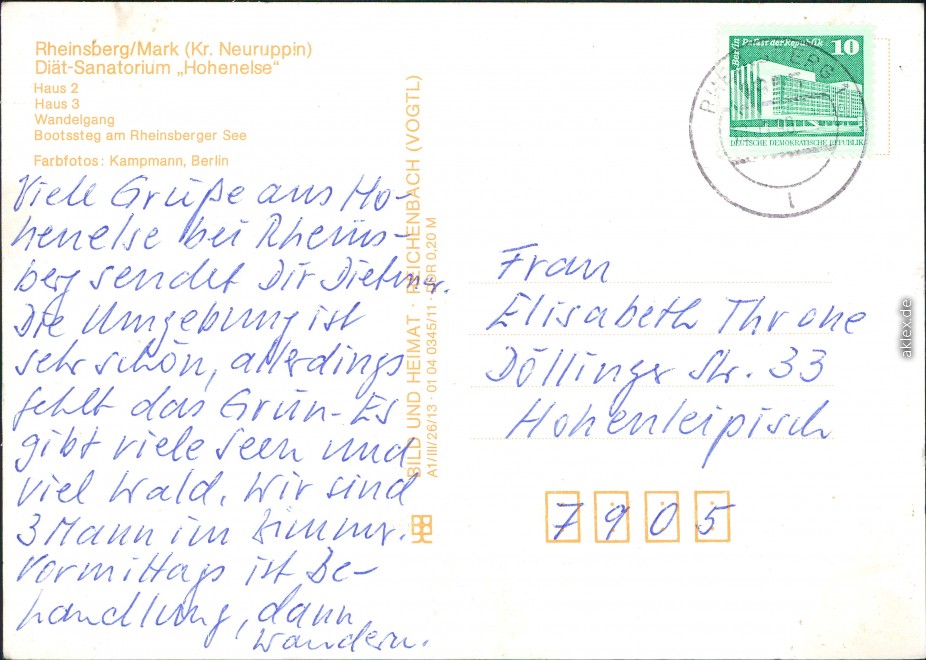 Rheinsberg/Mark (Kr. Neuruppin)
Diät-Sanatorium „Hohenelse“
Haus 2
Haus 3
Wandelgang
Bootssteg am Rheinsberger See
Farbfotos: Kampmann, Berlin
Viele Grüße aus Ho-
henelse bei Rheins-
berg sendet Dir Dietmar.
Die Umgebung ist
sehr schön, allerdings
fehlt das Grün. Es
gibt viele Seen und
viel Wald. Wir sind
3 Mann im Zimmer.
Vormittags ist Be-
handlung, dann
wandern.
BILD UND HEIMAT · REICHENBACH (VOGTL)
A1/III/26/13 · 01 04 0345/11 · DDR 0,20 M
Berlin Palast der Republik 10
DEUTSCHE DEMOKRATISCHE REPUBLIK
RHEINSBERG 1
Frau
Elisabeth Throne
Döllinger Str. 33
Hohenleipisch
7905
aklex.de